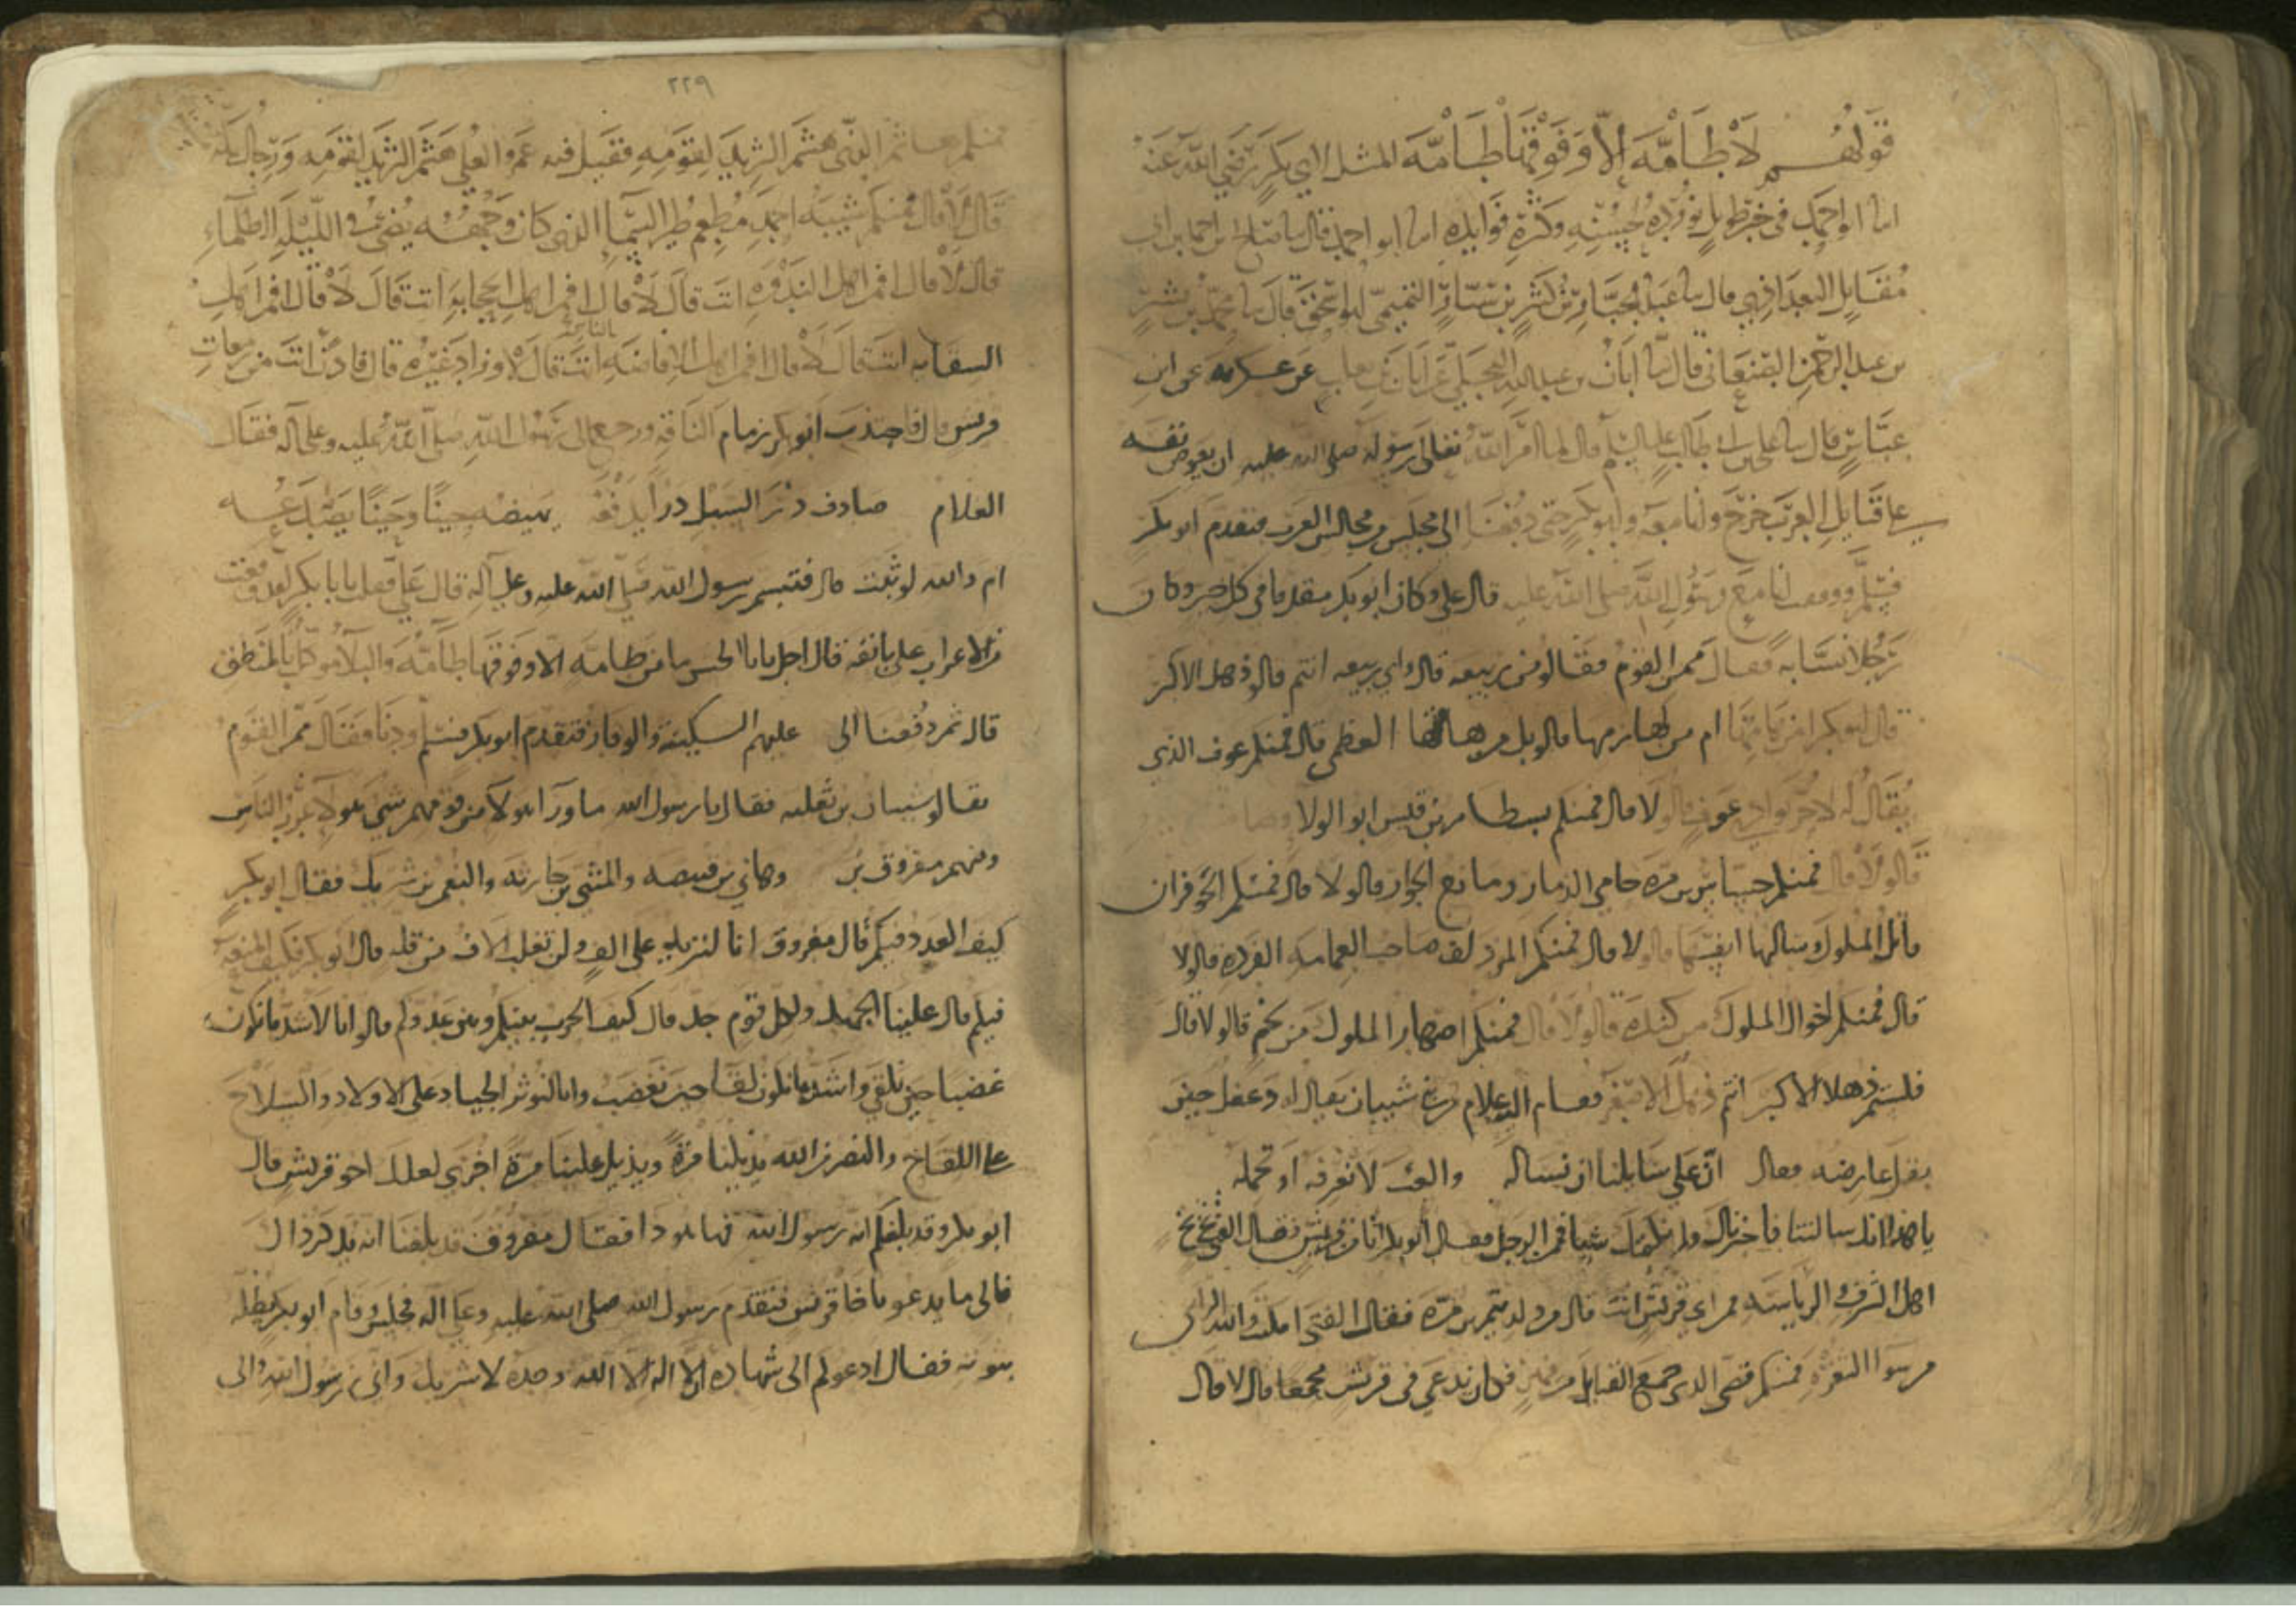 قولهم لا طامة الا وفوقها طامة المثل لابي بكر رضي الله عنه
في خبر طويل نورده لحسنه وكثرة فوايده ابو احمد قال
قال عبد الجبار بن كثير بن سيار التميمي قال محمد بن بشر
بن عبد الرحمن قال ابان بن عبد الله البجلي عن ابان بن تغلب عن عكرمه عن ابن
عباس قال علي بن ابي طالب عليه السلام قال لما امر الله تعالى رسوله صلى الله عليه ان يعرض نفسه
على قبايل العرب خرج وانا معه وابو بكر حتى دفعنا الى مجلس من مجالس العرب فتقدم ابو بكر
فسلم ووقفت انا مع رسول الله صلى الله عليه قال علي وكان ابو بكر مقدما في كل خير وكان
رجلا نسابه فقال ممن القوم فقالو من ربيعه قال واي ربيعه انتم قالو ذهل الاكبر
قال ابو بكر امن هامتها ام من لهازمها قالو بل من هامتها العظمى قال فمنكم عوف الذي
يقال له لا حر بوادي عوف قالو لا قال فمنكم بسطام بن قيس ابو الولا
قالو لا قال فمنكم جساس بن مره حامي الذمار ومانع الجار قالو لا قال فمنكم الحوفزان
قاتل الملوك وسالبها انفسها قالو لا قال فمنكم المزدلف صاحب العمامه الفرده قالو لا
قال فمنكم اخوال الملوك من كنده قالو لا قال فمنكم اصهار الملوك من لخم قالو لا قال
فلستم ذهلا الاكبر انتم ذهل الاصغر فقام اليه غلام من بني شيبان يقال له دغفل حين
بقل عارضه فقال ان على سايلنا ان نساله والعب لا نعرفه او نحمله
يا هذا انك سالتنا فاخبرناك ولم نكتمك شيا فمن الرجل فقال ابو بكر انا من قريش فقال الفتى بخ بخ
اهل الشرف والرياسه فمن اي قريش انت قال من ولد تيم بن مره فقال الفتى امكنت والله الرامي
من سوا الثغره فمنكم قصي الذي جمع القبايل من فهر فكان يدعى في قريش مجمعا قال لا قال
٢٢٩
فمنكم هاشم الذي هشم الثريد لقومه فقيل فيه عمرو العلى هشم الثريد لقومه ورجال مكة
قال لا قال فمنكم شيبة الحمد مطعم طير السما الذي كان وجهه يضي في الليلة الظلماء
قال لا قال افمن اهل الندوه انت قال لا قال افمن اهل الحجابه انت قال لا قال افمن اهل
السقايه انت قال لا قال افمن اهل الافاضه بالناس انت قال لا وزاد غيره قال فاذن انت من زمعات
قريش قال فاجتذب ابو بكر زمام الناقه ورجع الى رسول الله صلى الله عليه وعلى اله فقال
الغلام صادف در السيل درا يدفعه يهيضه حينا وحينا يصدعه
ام والله لو ثبت قال فتبسم رسول الله صلى الله عليه وعلى اله قال علي فقلت يابا بكر لقد وقعت
من الاعرابي على باقعه قال اجل يابا الحسن ما من طامه الا وفوقها طامه والبلا موكل بالمنطق
قال ثم دفعنا الى عليهم السكينه والوقار فتقدم ابو بكر فسلم ودنا فقال ممن القوم
فقالو شيبان بن ثعلبه فقال يا رسول الله ما ورا هولا من قومهم شي هولا غرر الناس
وفيهم مفروق بن وهاني بن قبيصه والمثنى بن حارثه والنعمن بن شريك فقال ابو بكر
كيف العدد فيكم قال مفروق انا لنزيد على الف ولن تغلب الاف من قله قال ابو بكر فكيف المنعه
فيكم قال علينا الجهد ولكل قوم جد قال كيف الحرب بينكم وبين عدوكم قالو انا لاشد ما نكون
غضبا حين نلقى واشد ما نكون لقا حين نغضب وانا لنوثر الجياد على الاولاد والسلاح
على اللقاح والنصر من الله يديلنا مرة ويديل علينا مرة اخرى لعلك اخو قريش قال
ابو بكر وقد بلغكم انه رسول الله فها هو ذا فقال مفروق قد بلغنا انه يذكر ذلك
فالى ما يدعو يا اخا قريش فتقدم رسول الله صلى الله عليه وعلى اله فجلس وقام ابو بكر يظله
بثوبه فقال ادعوكم الى شهاده الا اله الا الله وحده لا شريك واني رسول الله والى